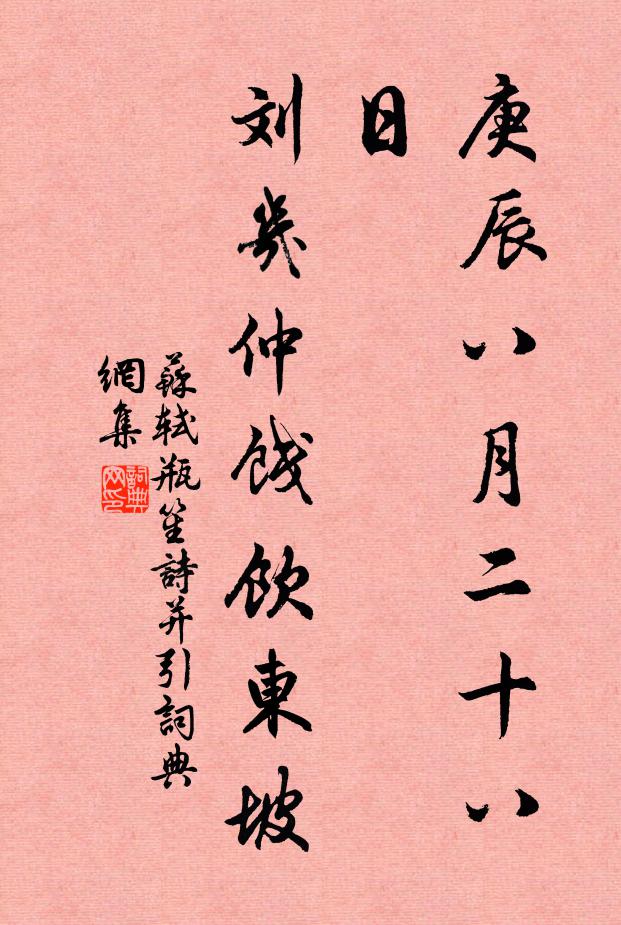 庚辰八月二十八
日
刘几仲饯飲東坡
蘇軾瓶笙詩并引詞典
網集
詞典
网印